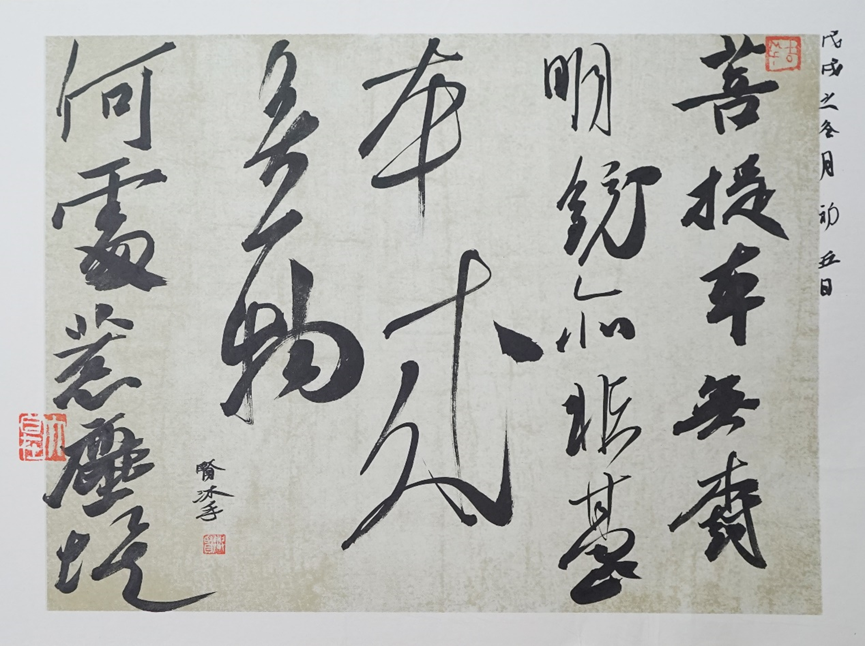 戊戌之冬月初五日
菩提本無樹
明鏡亦非臺
本来
無一物
賢沐手
何處惹塵埃